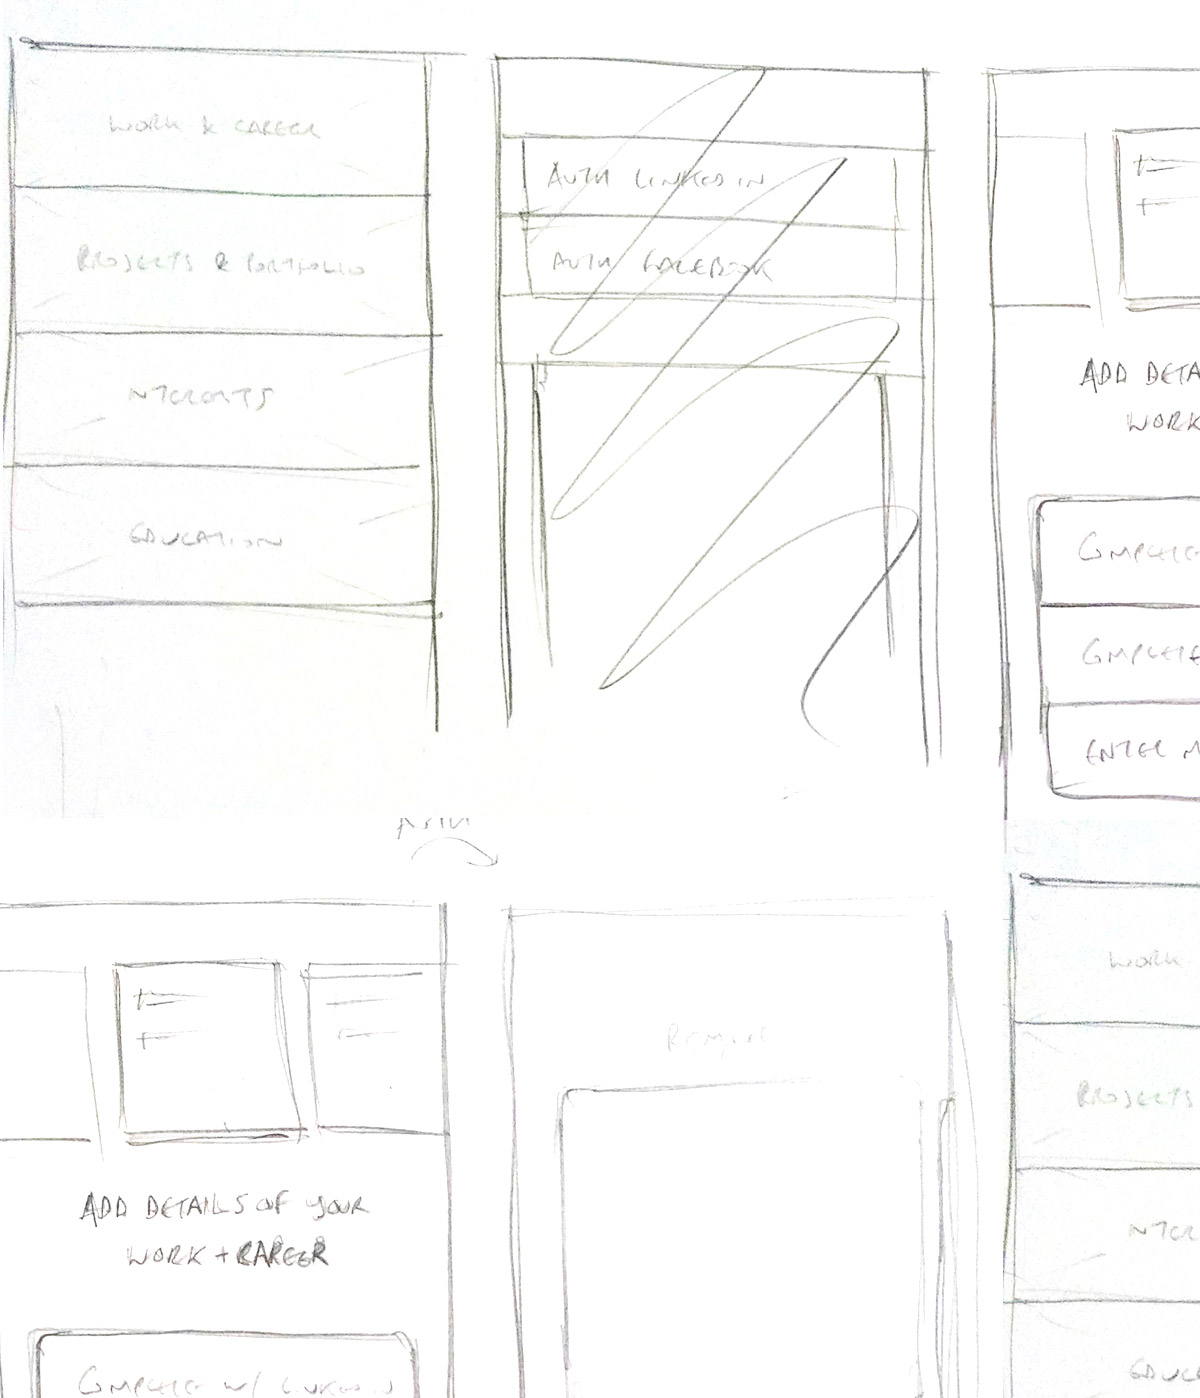 WORK & CAREER
PROJECTS & PORTFOLIO
NTERESTS
EDUCATION
AUTH LINKED IN
AUTH FACEBOOK
ADD DETA
WORK
COMPLETE
COMPLETE
ENTER M
ADD DETAILS OF YOUR
WORK + CAREER
COMPLETE W/ LINKED IN
WORK
PROJECTS
NTER
EDUC